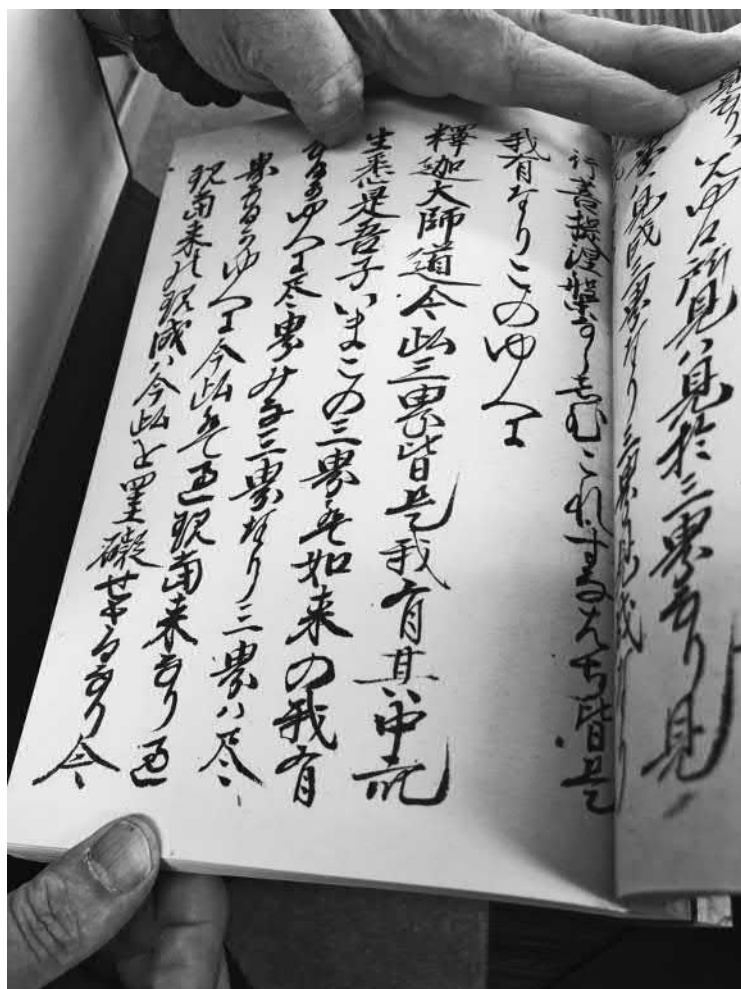 いはゆる所見ハ見於三界なり見
見成三界なり三界
行菩提涅槃ならしむこれすなはち皆是
我有なりこのゆへに
釋迦大師道今此三界皆是我有其中衆
生悉是吾子いまこの三界は如来の我有
なるかゆへに尽界みな三界なり三界ハ尽
界なるかゆへに今此は過現當来なり過
現當来の現成ハ今此を罣礙せさるなり今